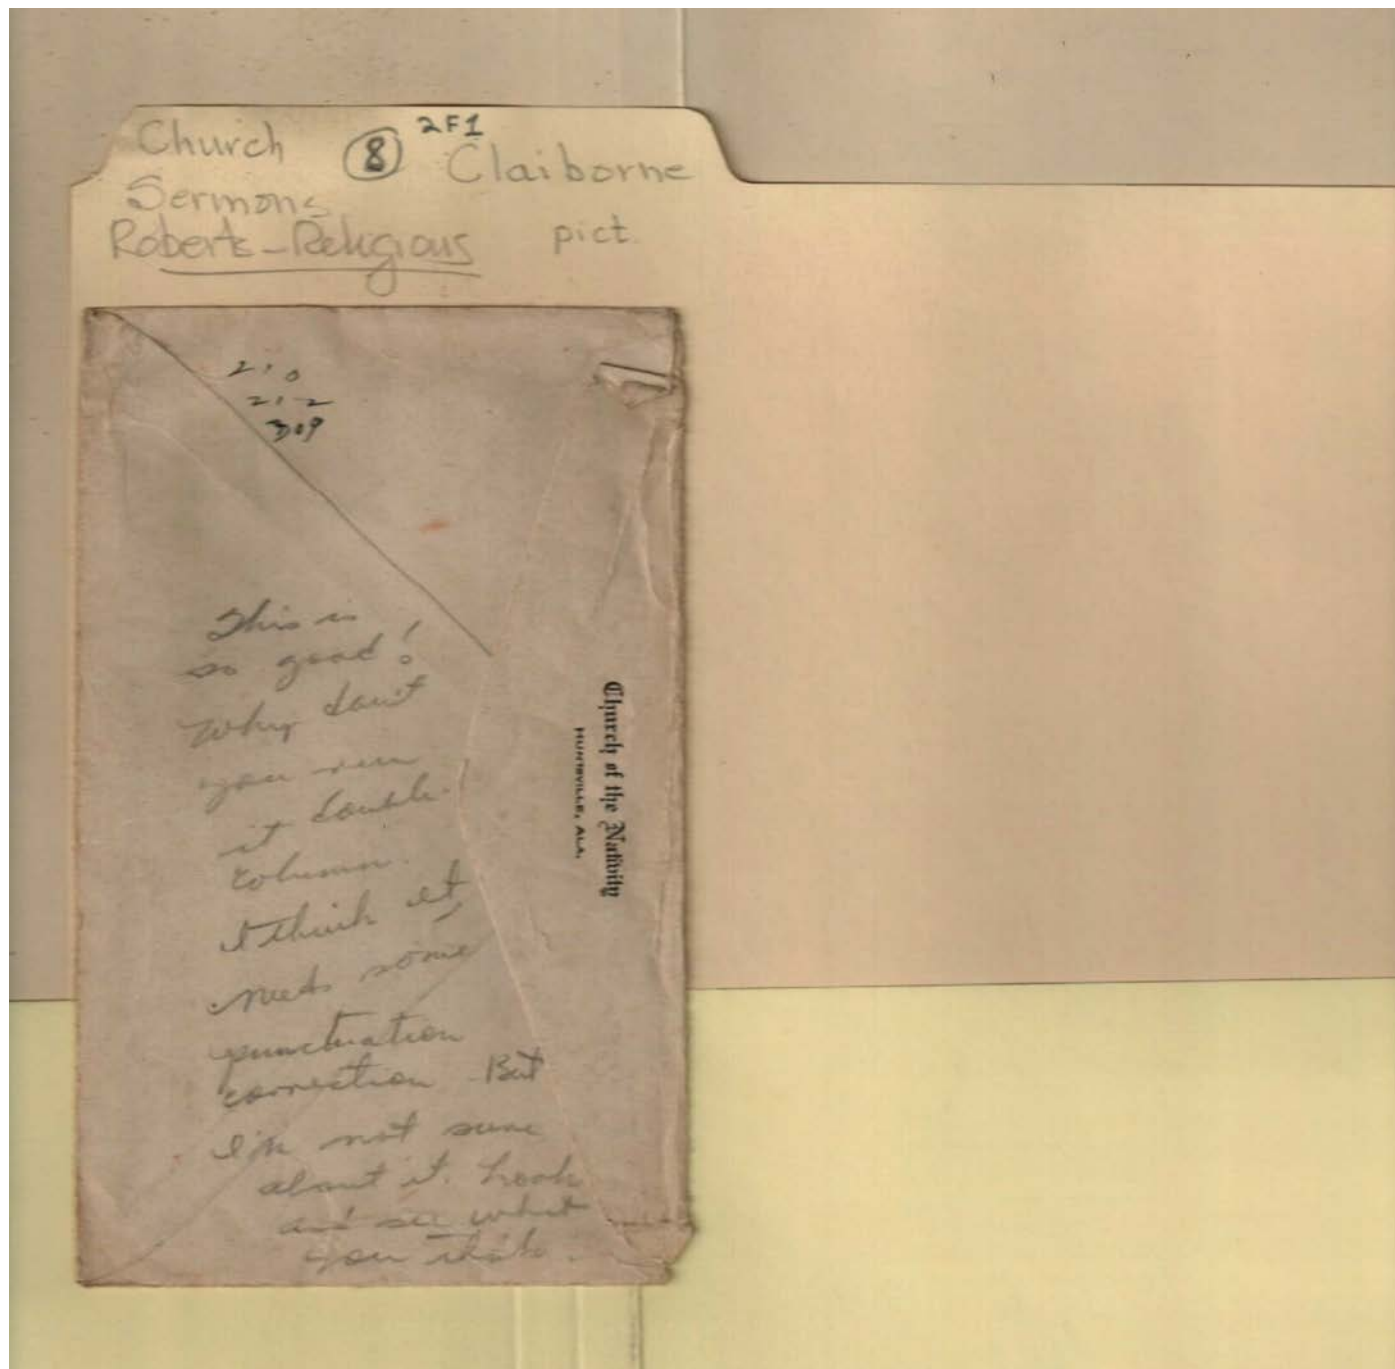 Church ⑧ 2F1 Claiborne
Sermons
Roberts-Religious pict.
210
212
309
This is
so good!
Why don't
you run
it double
column.
I think it
needs some
punctuation
correction But
I'm not sure
about it. Look
and see what
you think.
Church of the Nativity
HUNTSVILLE, ALA.